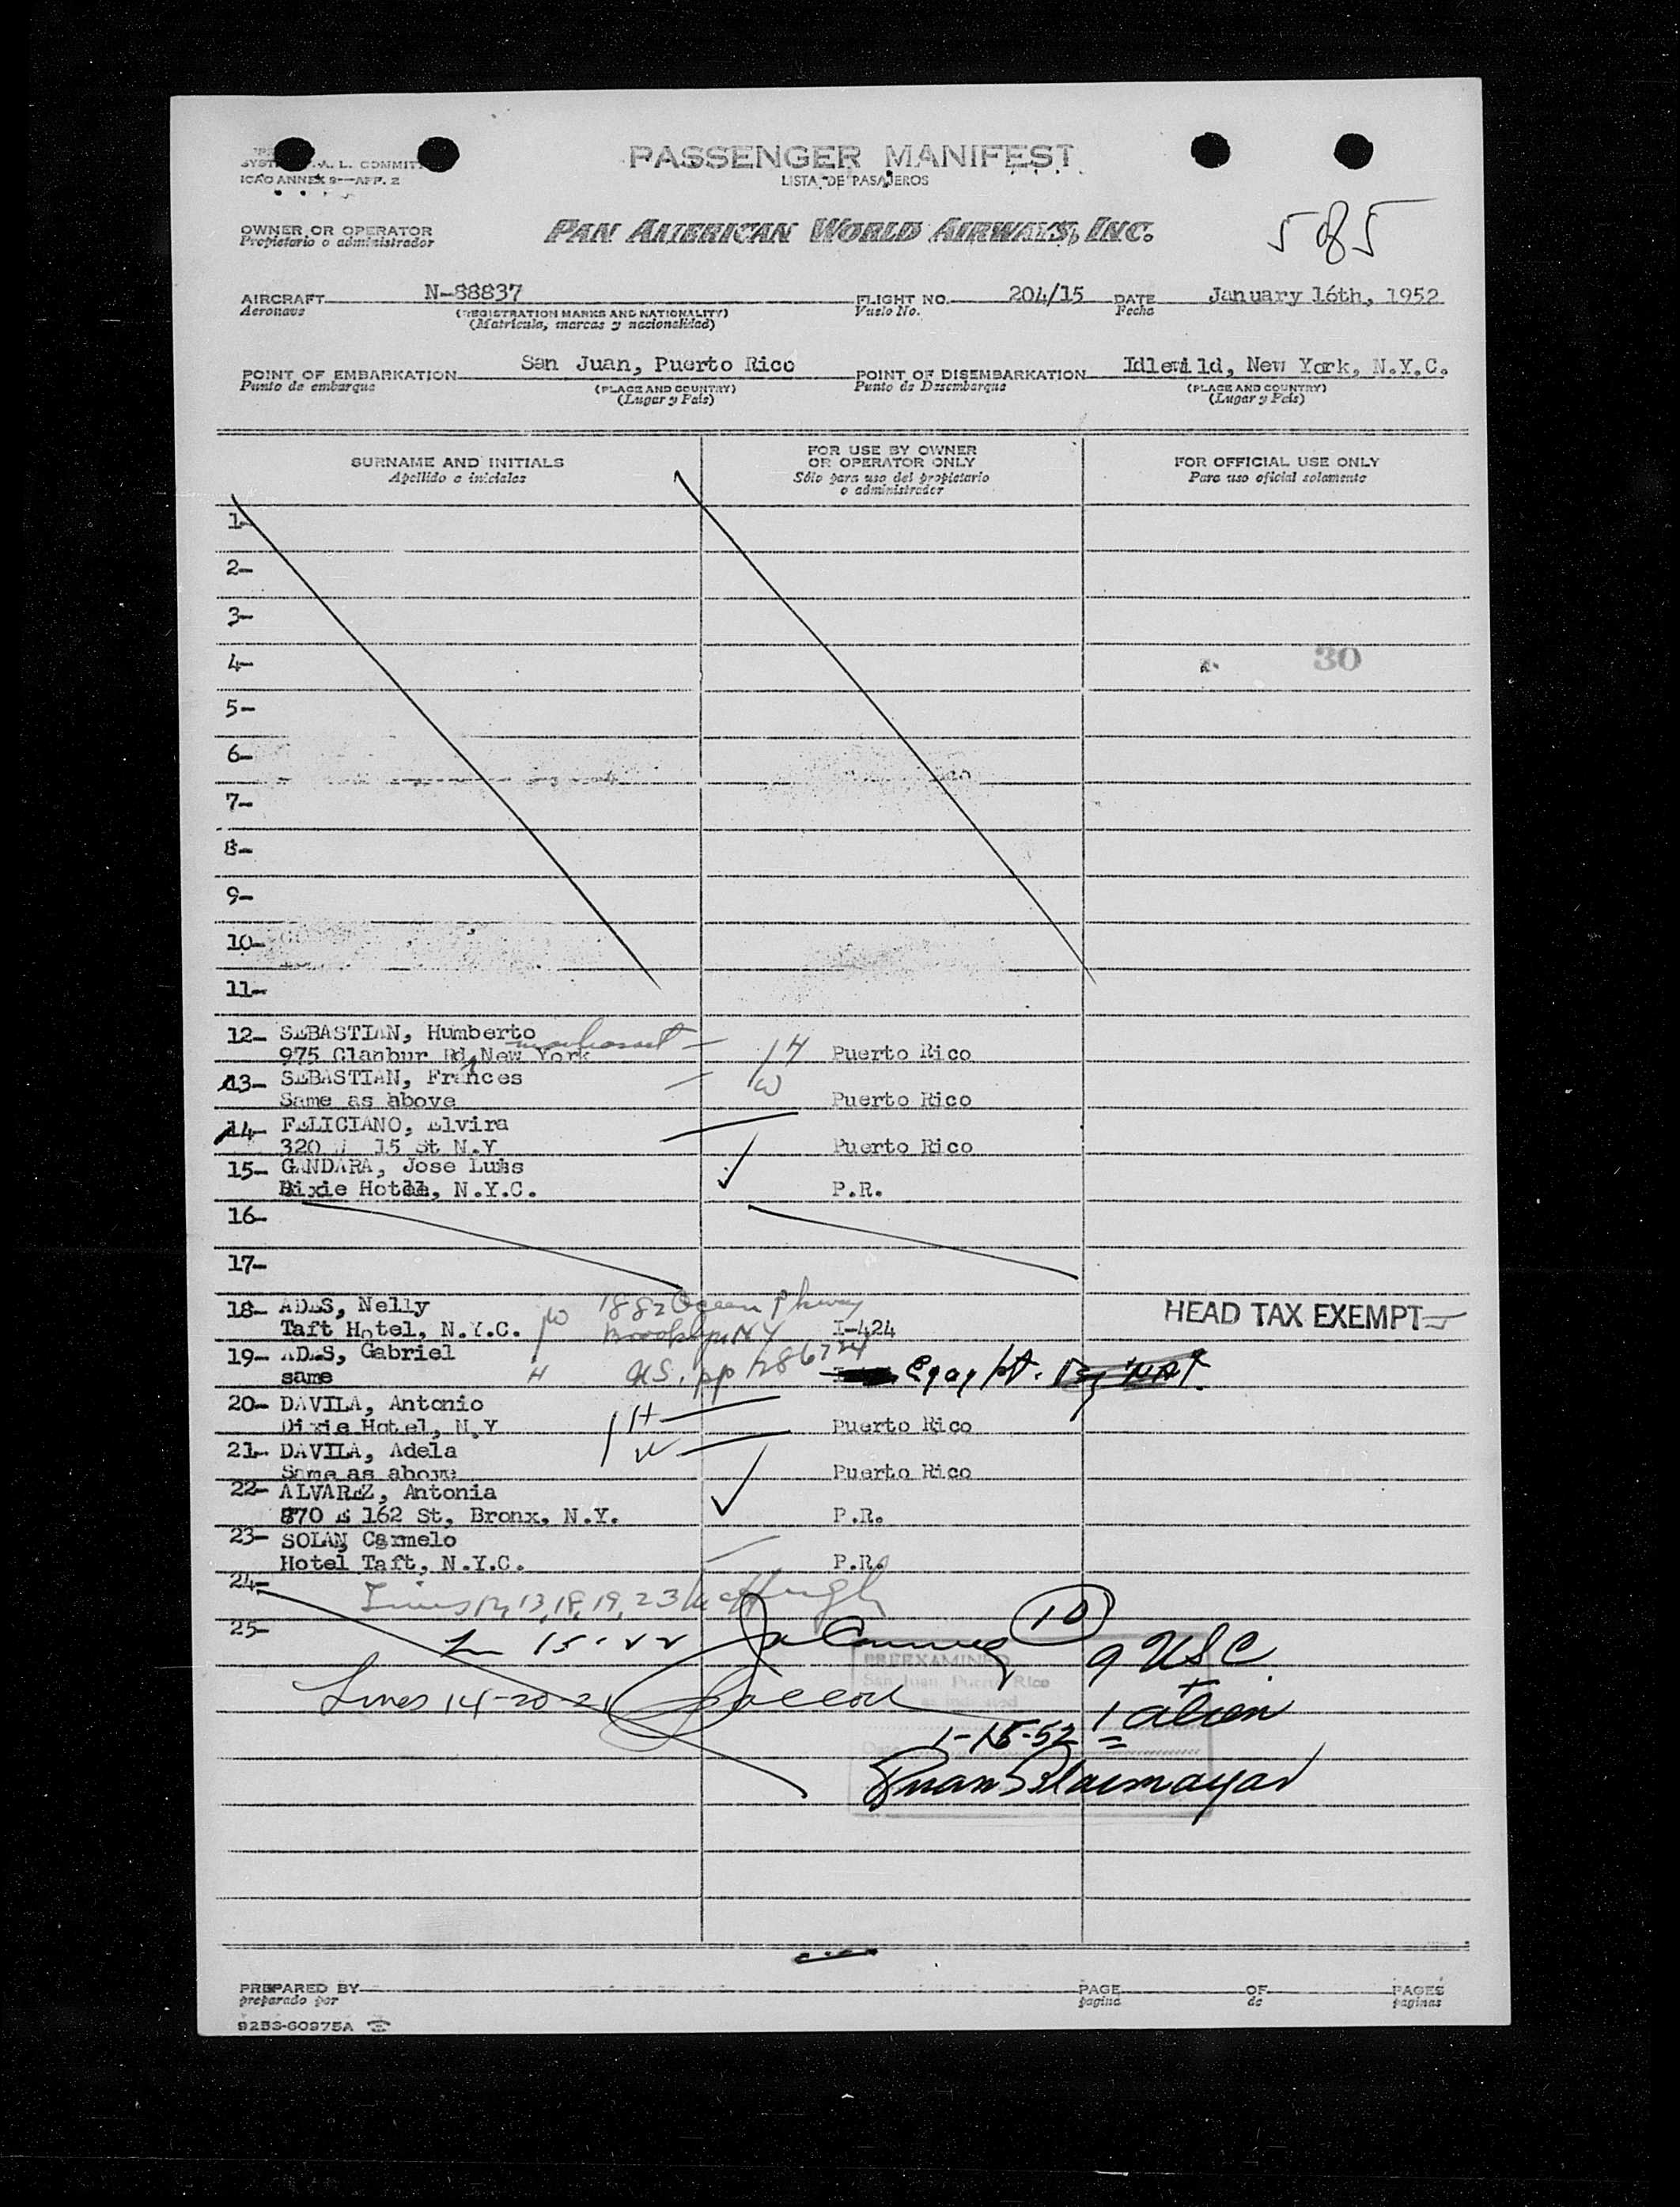 PASSENGER MANIFEST
LISTA DE PASAJEROS
ICAO ANNEX 9—APP. 2
OWNER OR OPERATOR
Propietario o administrador
PAN AMERICAN WORLD AIRWAYS, INC.
5 of 5
AIRCRAFT N-88837 FLIGHT NO. 204/15 DATE January 16th, 1952
Aeronave (REGISTRATION MARKS AND NATIONALITY) Vuelo No. Fecha
(Matrícula, marcas y nacionalidad)
POINT OF EMBARKATION San Juan, Puerto Rico POINT OF DISEMBARKATION Idlewild, New York, N.Y.C.
Punto de embarque (PLACE AND COUNTRY) Punto de Desembarque (PLACE AND COUNTRY)
(Lugar y País) (Lugar y País)
SURNAME AND INITIALS
Apellido e iniciales
FOR USE BY OWNER
OR OPERATOR ONLY
Sólo para uso del propietario
o administrador
FOR OFFICIAL USE ONLY
Para uso oficial solamente
1-
2-
3-
4- 30
5-
6-
7-
8-
9-
10-
11-
12- SEBASTIAN, Humberto
975 Clanbur Rd, New York H Puerto Rico
13- SEBASTIAN, Frances W
Same as above Puerto Rico
14- FELICIANO, Elvira
320 W 15 St N.Y Puerto Rico
15- GANDARA, Jose Luis
Dixie Hotel, N.Y.C. P.R.
16-
17-
18- ADES, Nelly 1882 Ocean Pkway HEAD TAX EXEMPT
Taft Hotel, N.Y.C. W Brooklyn NY I-424
19- ADES, Gabriel
same H US. pp 286724 Egypt.
20- DAVILA, Antonio
Dixie Hotel, N.Y H Puerto Rico
21- DAVILA, Adela
Same as above W Puerto Rico
22- ALVAREZ, Antonia
870 E 162 St, Bronx, N.Y. P.R.
23- SOLAN, Carmelo
Hotel Taft, N.Y.C. P.R.
24- Lines 12, 13, 18, 19, 23
25- Ln 15-22 10
9 USC
PREEXAMINED
San Juan, Puerto Rico
as indicated
+
Lines 14-20-21
1 alien
1-15-52
Date
PREPARED BY PAGE OF PAGES
preparado por página de páginas
9253-60975A